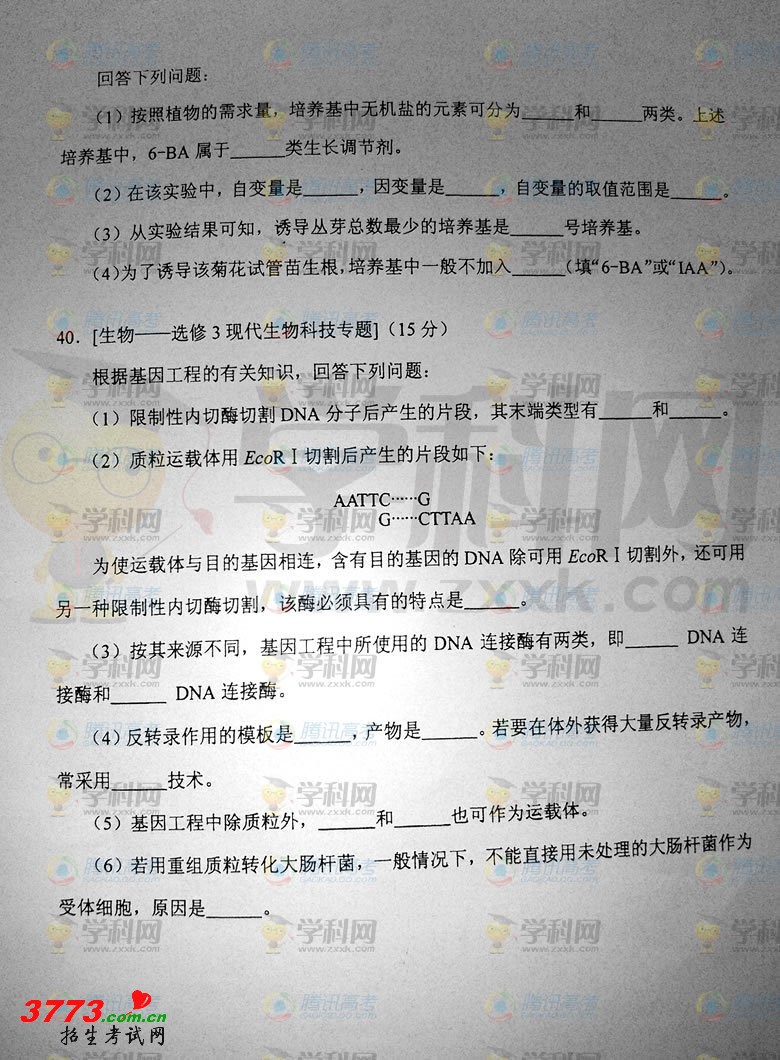 回答下列问题：
（1）按照植物的需求量，培养基中无机盐的元素可分为______和______两类。上述
培养基中，6-BA 属于______类生长调节剂。
（2）在该实验中，自变量是______，因变量是______，自变量的取值范围是______。
（3）从实验结果可知，诱导丛芽总数最少的培养基是______号培养基。
（4）为了诱导该菊花试管苗生根，培养基中一般不加入______（填“6-BA”或“IAA”）。
40．[生物——选修 3 现代生物科技专题]（15 分）
根据基因工程的有关知识，回答下列问题：
（1）限制性内切酶切割 DNA 分子后产生的片段，其末端类型有______和______。
（2）质粒运载体用 EcoRⅠ切割后产生的片段如下：
AATTC……G
G……CTTAA
为使运载体与目的基因相连，含有目的基因的 DNA 除可用 EcoRⅠ切割外，还可用
另一种限制性内切酶切割，该酶必须具有的特点是______。
（3）按其来源不同，基因工程中所使用的 DNA 连接酶有两类，即______ DNA 连
接酶和______ DNA 连接酶。
（4）反转录作用的模板是______，产物是______。若要在体外获得大量反转录产物，
常采用______技术。
（5）基因工程中除质粒外，______和______也可作为运载体。
（6）若用重组质粒转化大肠杆菌，一般情况下，不能直接用未处理的大肠杆菌作为
受体细胞，原因是______。
学科网
www.zxxk.com
腾讯高考
3773.com.cn
招生考试网